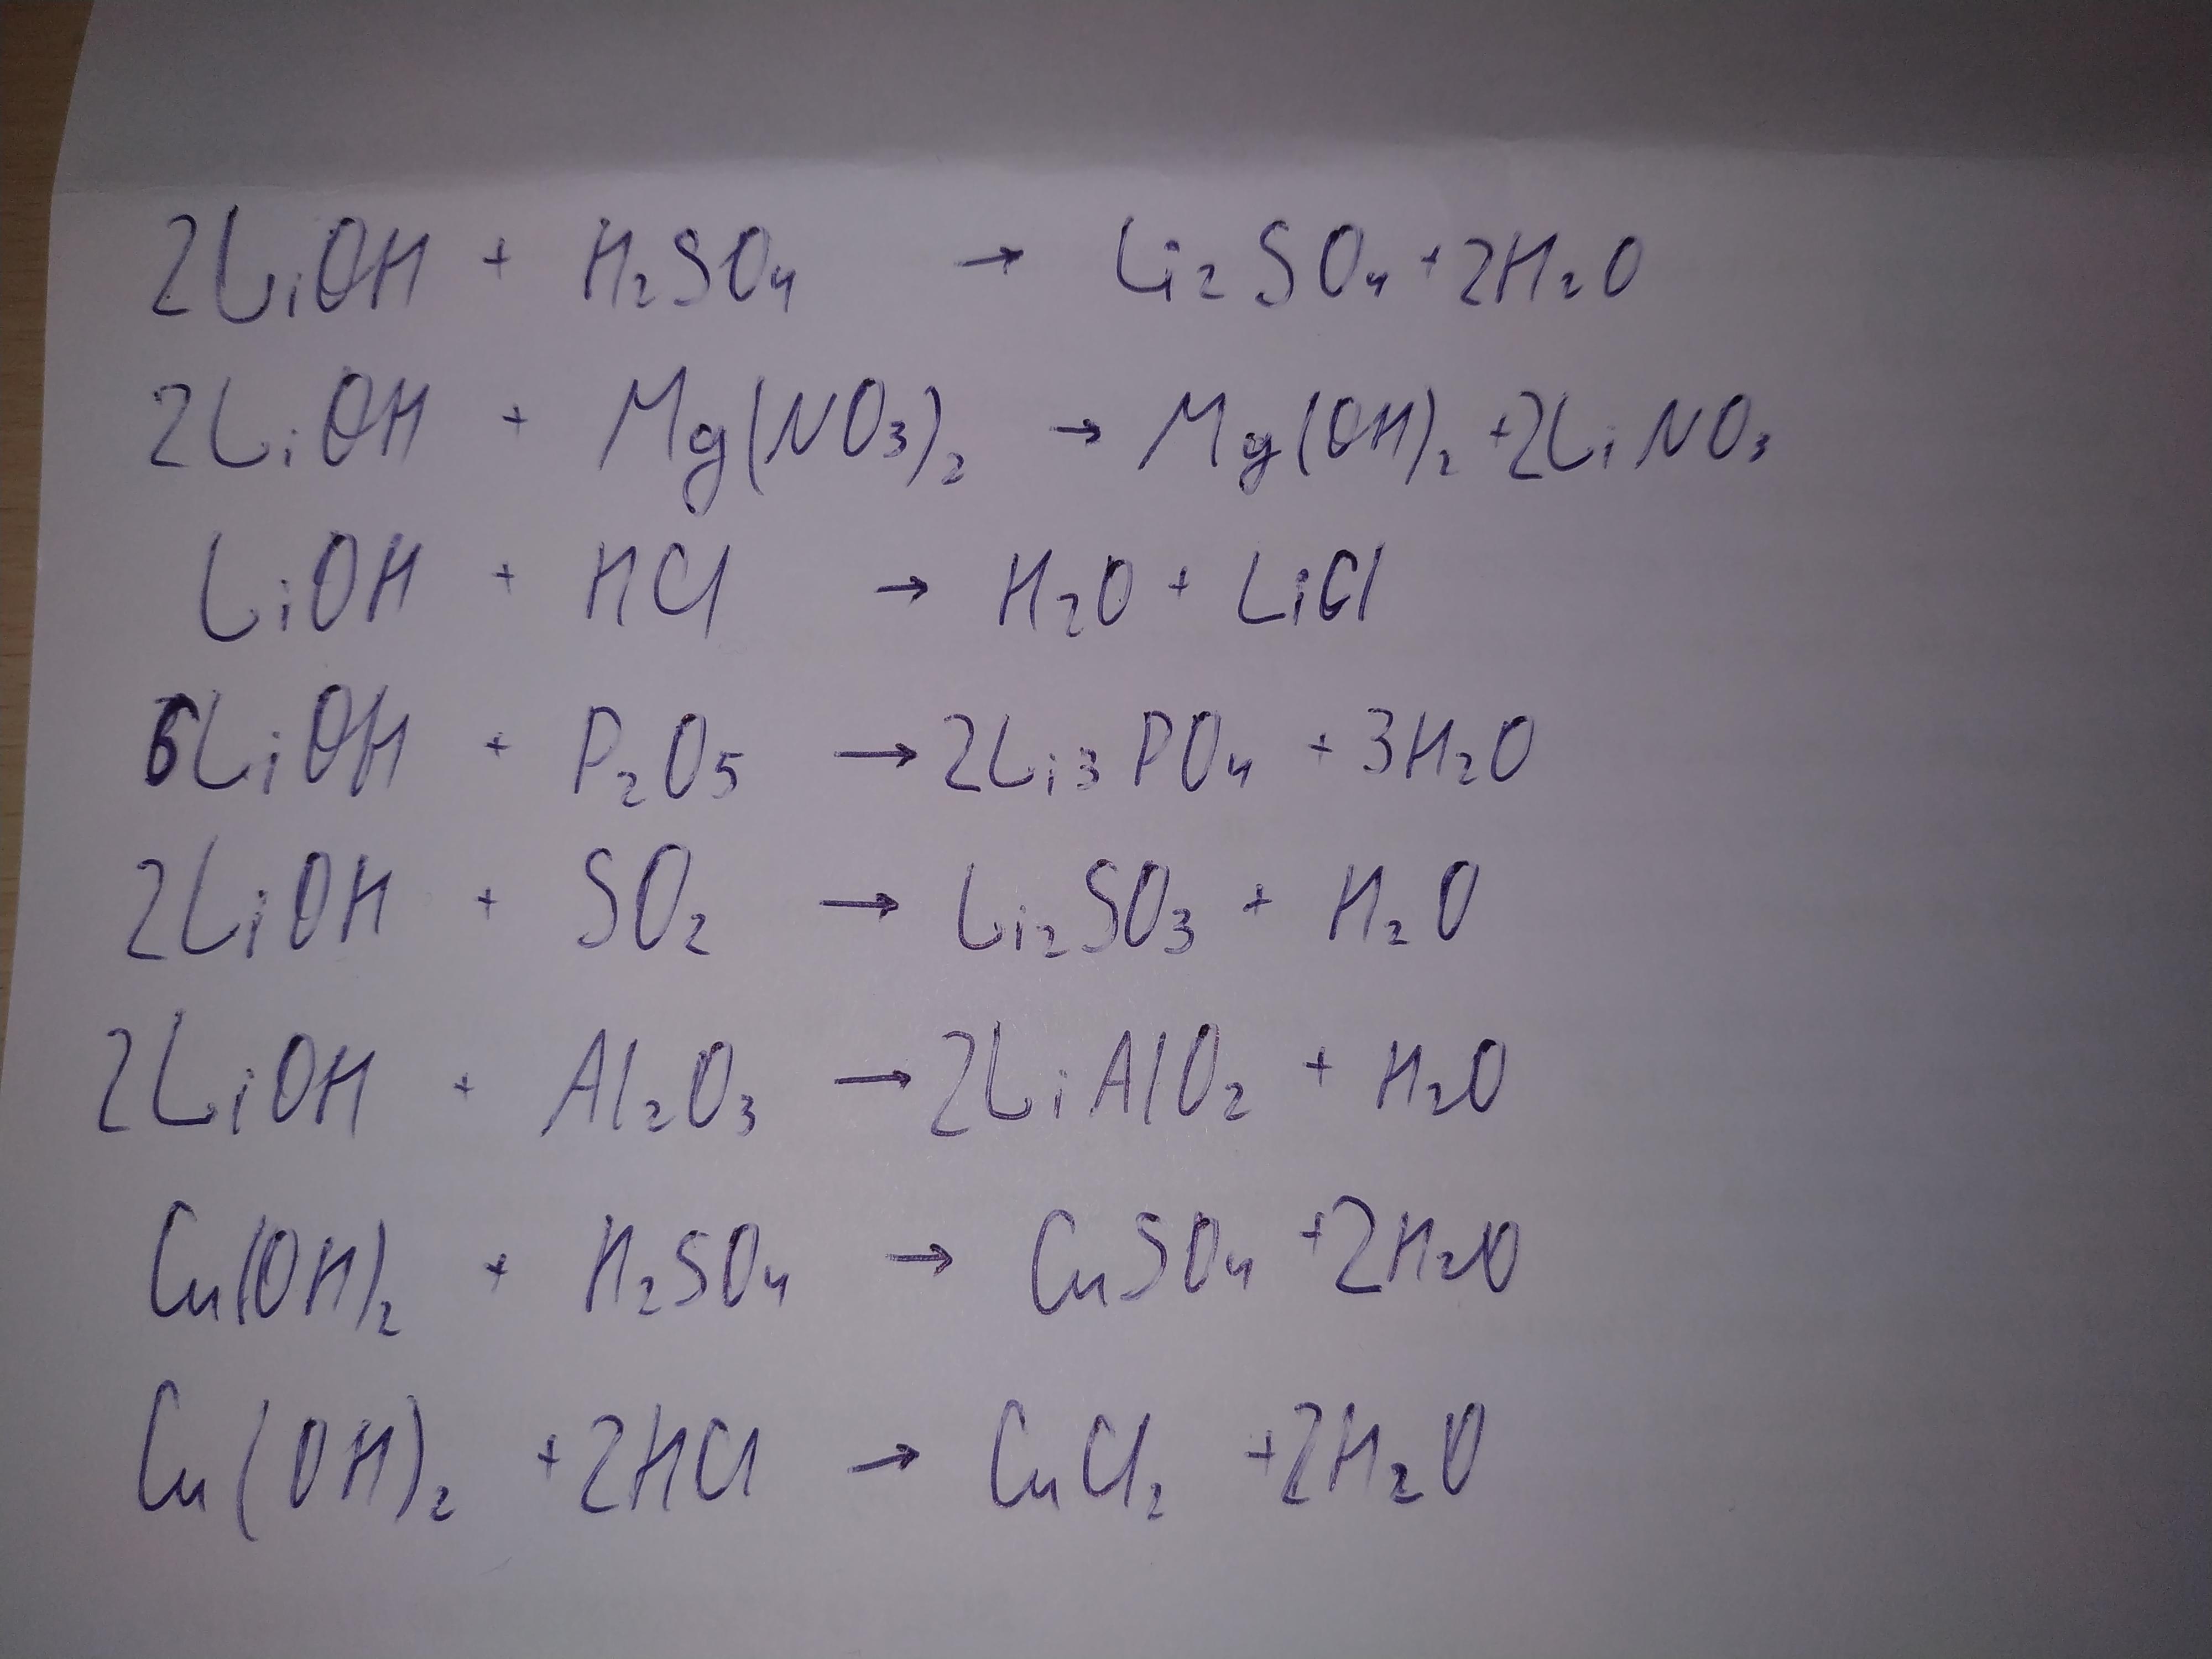 2LiOH + H₂SO₄ → Li₂SO₄ + 2H₂O
2LiOH + Mg(NO₃)₂ → Mg(OH)₂ + 2LiNO₃
LiOH + HCl → H₂O + LiCl
6LiOH + P₂O₅ → 2Li₃PO₄ + 3H₂O
2LiOH + SO₂ → Li₂SO₃ + H₂O
2LiOH + Al₂O₃ → 2LiAlO₂ + H₂O
Cu(OH)₂ + H₂SO₄ → CuSO₄ + 2H₂O
Cu(OH)₂ + 2HCl → CuCl₂ + 2H₂O